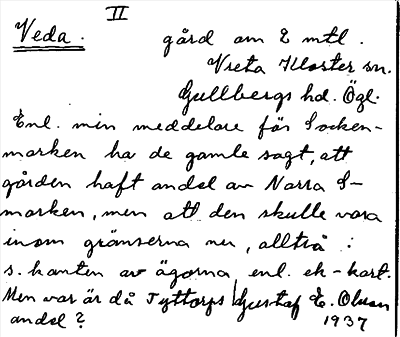 II
Veda. gård om 2 mtl.
Vreta Kloster sn.
Gullbergs hd. Ögl.
Enl. min meddelare för Socken-
marken ha de gamle sagt, att
gården haft andel av Norra S-
marken, men att den skulle vara
inom gränserna nu, alltså i
s. kanten av ägorna enl. ek-kart.
Men var är då Tyttorps andel?
Gustaf E. Olsson
1937